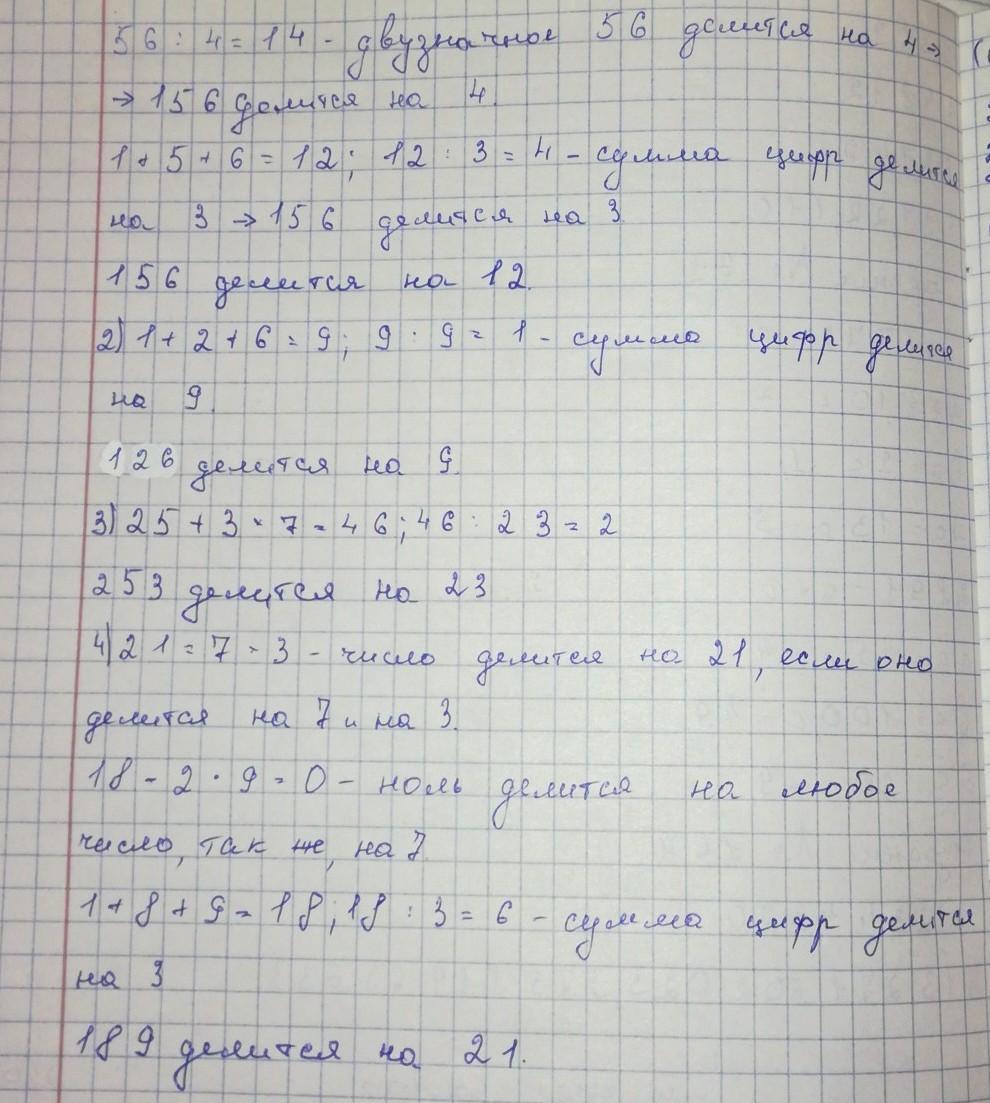 56 : 4 = 14 - двузначное 56 делится на 4 →
→ 156 делится на 4.
1 + 5 + 6 = 12; 12 : 3 = 4 - сумма цифр делится
на 3 → 156 делится на 3
156 делится на 12.
2) 1 + 2 + 6 = 9; 9 : 9 = 1 - сумма цифр делится
на 9.
126 делится на 9.
3) 25 + 3 · 7 = 46; 46 : 23 = 2
253 делится на 23
4) 21 = 7 · 3 - число делится на 21, если оно
делится на 7 и на 3.
18 - 2 · 9 = 0 - ноль делится на любое
число, так же, на 7.
1 + 8 + 9 = 18; 18 : 3 = 6 - сумма цифр делится
на 3
189 делится на 21.